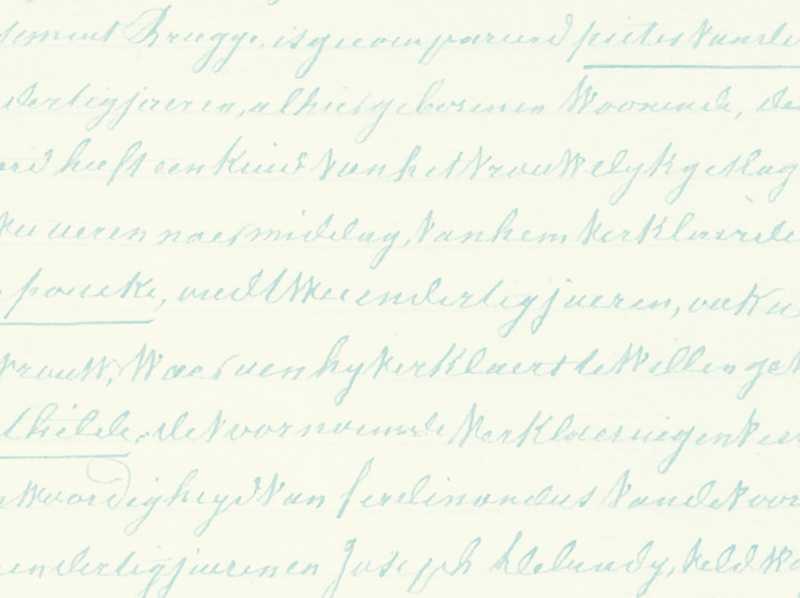 sement Brugge, is gecompareerd pieter Vande
dertig jaeren, alhier geboren en Woonende, de
eerd heeft een kind Van het Vrouwelyk geslag
uren naer middag, Van hem Verklaerde
poucke, oud tWee en dertig jaeren, ook
Vrouw, Waer van hy Verklaert te Willen ge
thilde, de Voornoemde Verklaering en
woordigheyd Van ferdinandus Vande Voor
en dertig jaeren en Joseph Veld